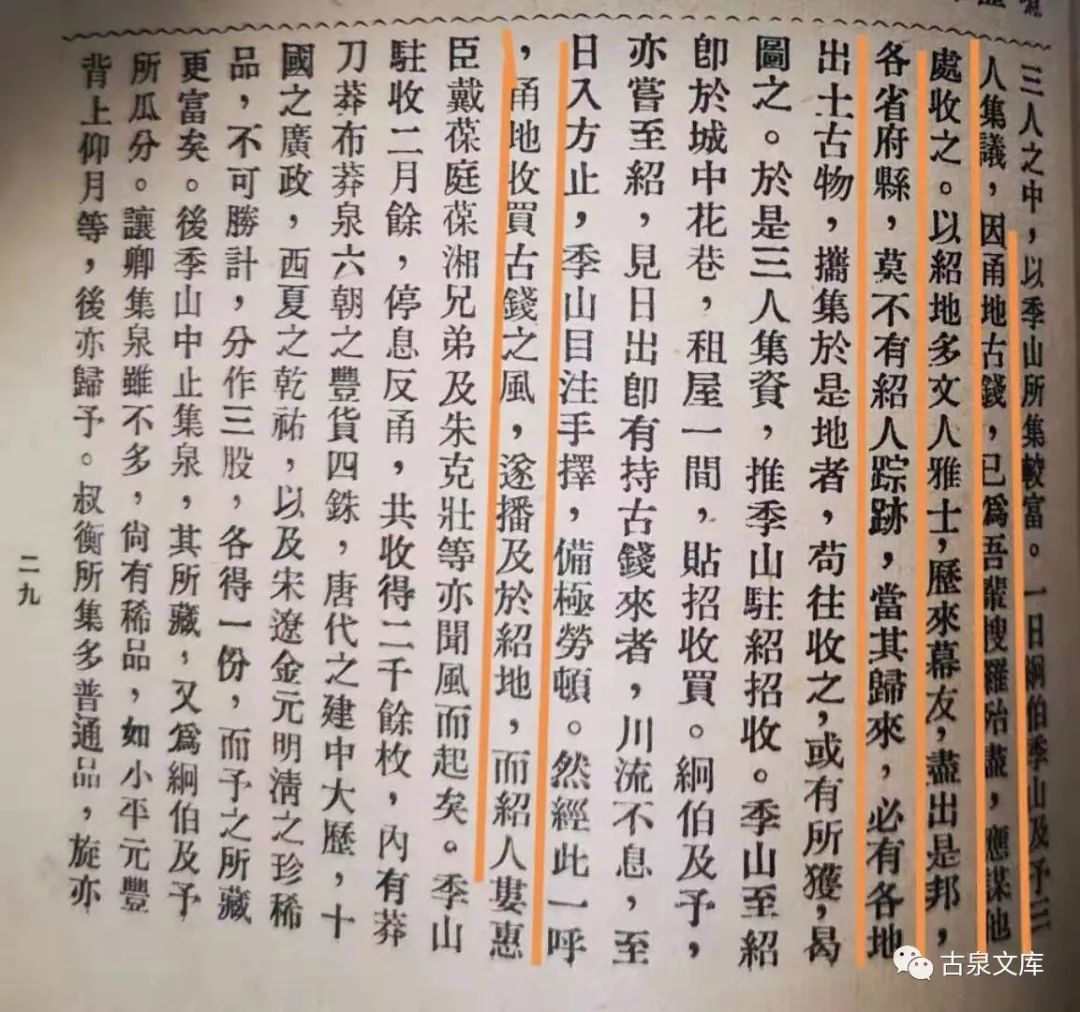 三人之中，以季山所集較富。一日絅伯季山及予三
人集議，因甬地古錢，已爲吾輩搜羅殆盡，應謀他
處收之。以紹地多文人雅士，歷來幕友，盡出是邦，
各省府縣，莫不有紹人踪跡，當其歸來，必有各地
出土古物，攜集於是地者，苟往收之，或有所獲，曷
圖之。於是三人集資，推季山駐紹招收。季山至紹
卽於城中花巷，租屋一間，貼招收買。絅伯及予，
亦嘗至紹，見日出卽有持古錢來者，川流不息，至
日入方止，季山目注手擇，備極勞頓。然經此一呼
，甬地收買古錢之風，遂播及於紹地，而紹人婁惠
臣戴葆庭葆湘兄弟及朱克壯等亦聞風而起矣。季山
駐收二月餘，停息反甬，共收得二千餘枚，內有莽
刀莽布莽泉六朝之豐貨四銖，唐代之建中大歷，十
國之廣政，西夏之乾祐，以及宋遼金元明清之珍稀
品，不可勝計，分作三股，各得一份，而予之所藏
更富矣。後季山中止集泉，其所藏，又爲絅伯及予
所瓜分。讓卿集泉雖不多，尙有稀品，如小平元豐
背上仰月等，後亦歸予。叔衡所集多普通品，旋亦
二九
古泉文库